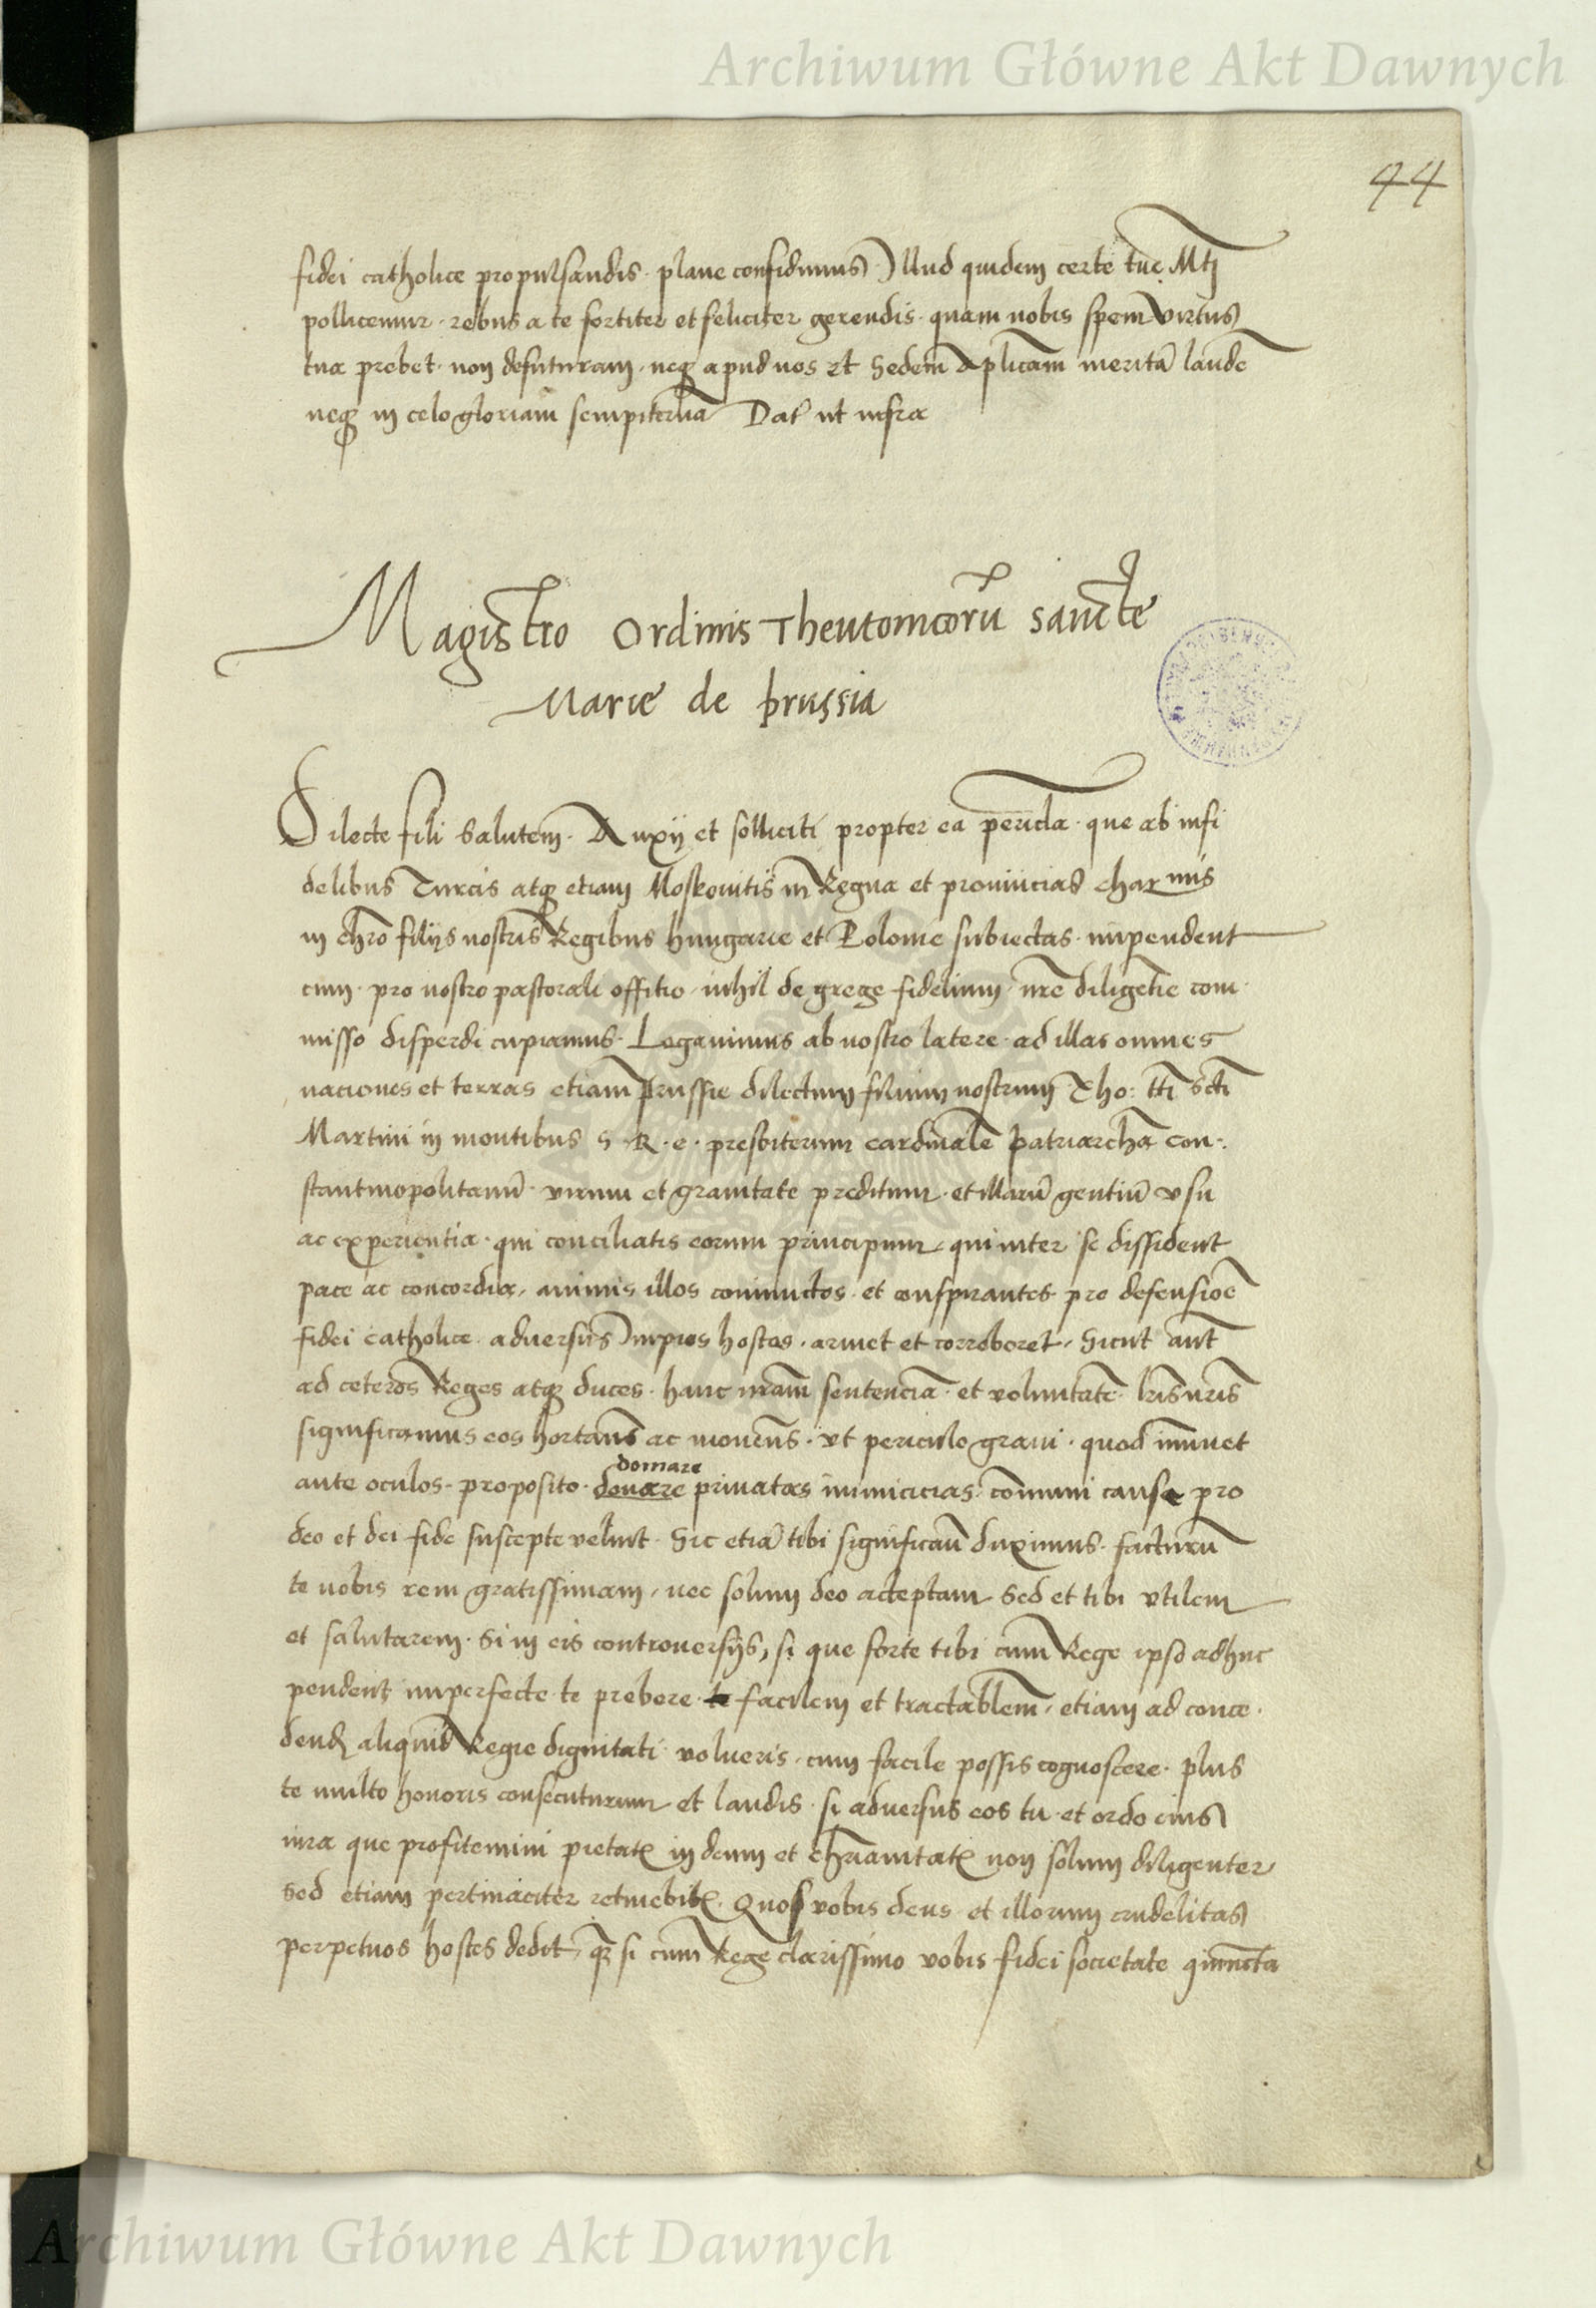 Archiwum Główne Akt Dawnych
44
fidei catholice propulsandis · plane confidimus · Illud quidem certe tue Mti
pollicemur · rebus a te fortiter et feliciter gerendis · quam nobis spem virtus
tua prebet · non defuturam · neq apud nos et Sedem Aplicam meritã laudẽ
neq in celo gloriam sempiternã Dat ut infra
Magistro Ordinis Theutonicorũ sancte
Marie de prussia
Dilecte fili Salutem · Anxij et solliciti propter ea pericla · que ab infi
delibus Turcis atq etiam Moskovitis in Regna et provincias charmis
in chro filijs nostris Regibus hungarie et Polonie subiectas · impendent
cum · pro nostro pastorali offitio · nihil de grege fidelium · nre diligẽtie com ·
misso disperdi cupiamus · Legavimus ab nostro latere · ad illas omnes
naciones et terras etiam prussie dilectum filium nostrum Tho: tti scti
Martini in montibus S · R · e · presbiterum cardinalẽ patriarchã con ·
stantinopolitanũ · virum et gravitate preditum · et illarũ gentiũ usu
ac experientia · qui conciliatis eorum principum · qui inter se dissident
pace ac concordia · animis illos coniunctos · et conspirantes pro defensiõe
fidei catholice adversus impios hostes · armet et corroboret · Sicut aut
ad ceteros Reges atq duces · hanc nram sentenciã · et voluntatẽ · lris nris
significamus eos hortans ac monens · ut periculo gravi · quod imminet
domare
ante oculos · proposito · donare privatas inimicicias · communi cause pro
deo et dei fide suscepte velint · Sic etiã tibi significau duximus · facturũ
te nobis rem gratissimam · nec solum deo acceptam Sed et tibi utilem
et salutarem · Si in eis controversijs, si que forte tibi cum Rege ipso adhuc
pendent imperfecte te prebere te facilem et tractablem · etiam ad conce ·
dend aliquid Regie dignitati volueris · cum facile possis cognoscere · plus
te multo honoris consecuturum et laudis · si adversus eos tu · et ordo eius
iura que profitemini pietat in deum et chrianitat non solum diligenter
sed etiam pertinaciter retinebit · Quos vobis deus et illorum crudelitas
perpetuos hostes dedit · q si cum Rege clarissimo vobis fidei societate giuncta
Archiwum Główne Akt Dawnych